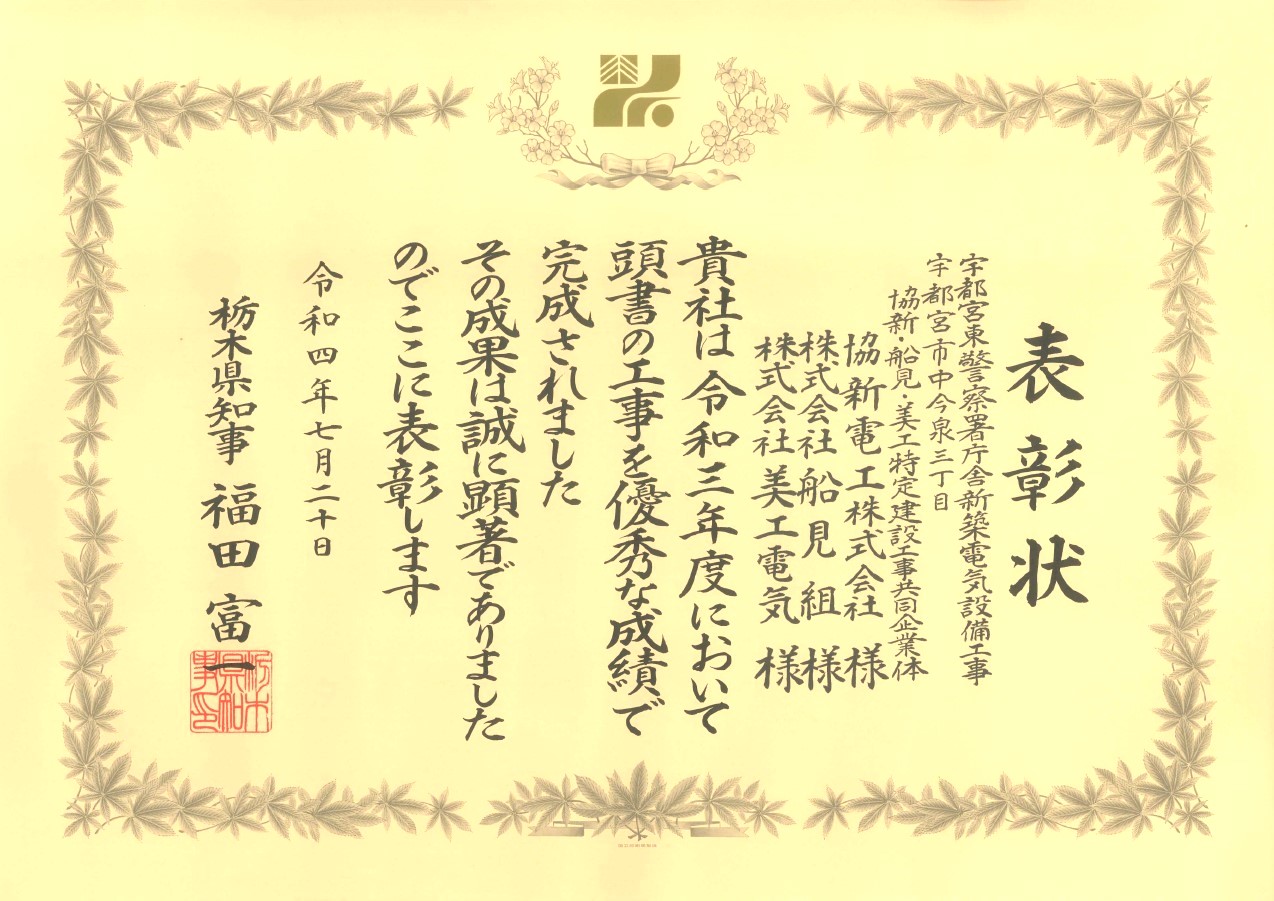 表彰状
宇都宮東警察署庁舎新築電気設備工事
宇都宮市中今泉三丁目
協新・船見・美工特定建設工事共同企業体
協新電工株式会社 様
株式会社船見組 様
株式会社美工電気 様
貴社は令和三年度において
頭書の工事を優秀な成績で
完成されました
その成果は誠に顕著でありました
のでここに表彰します
令和四年七月二十日
栃木県知事 福田富一
栃木県知事印